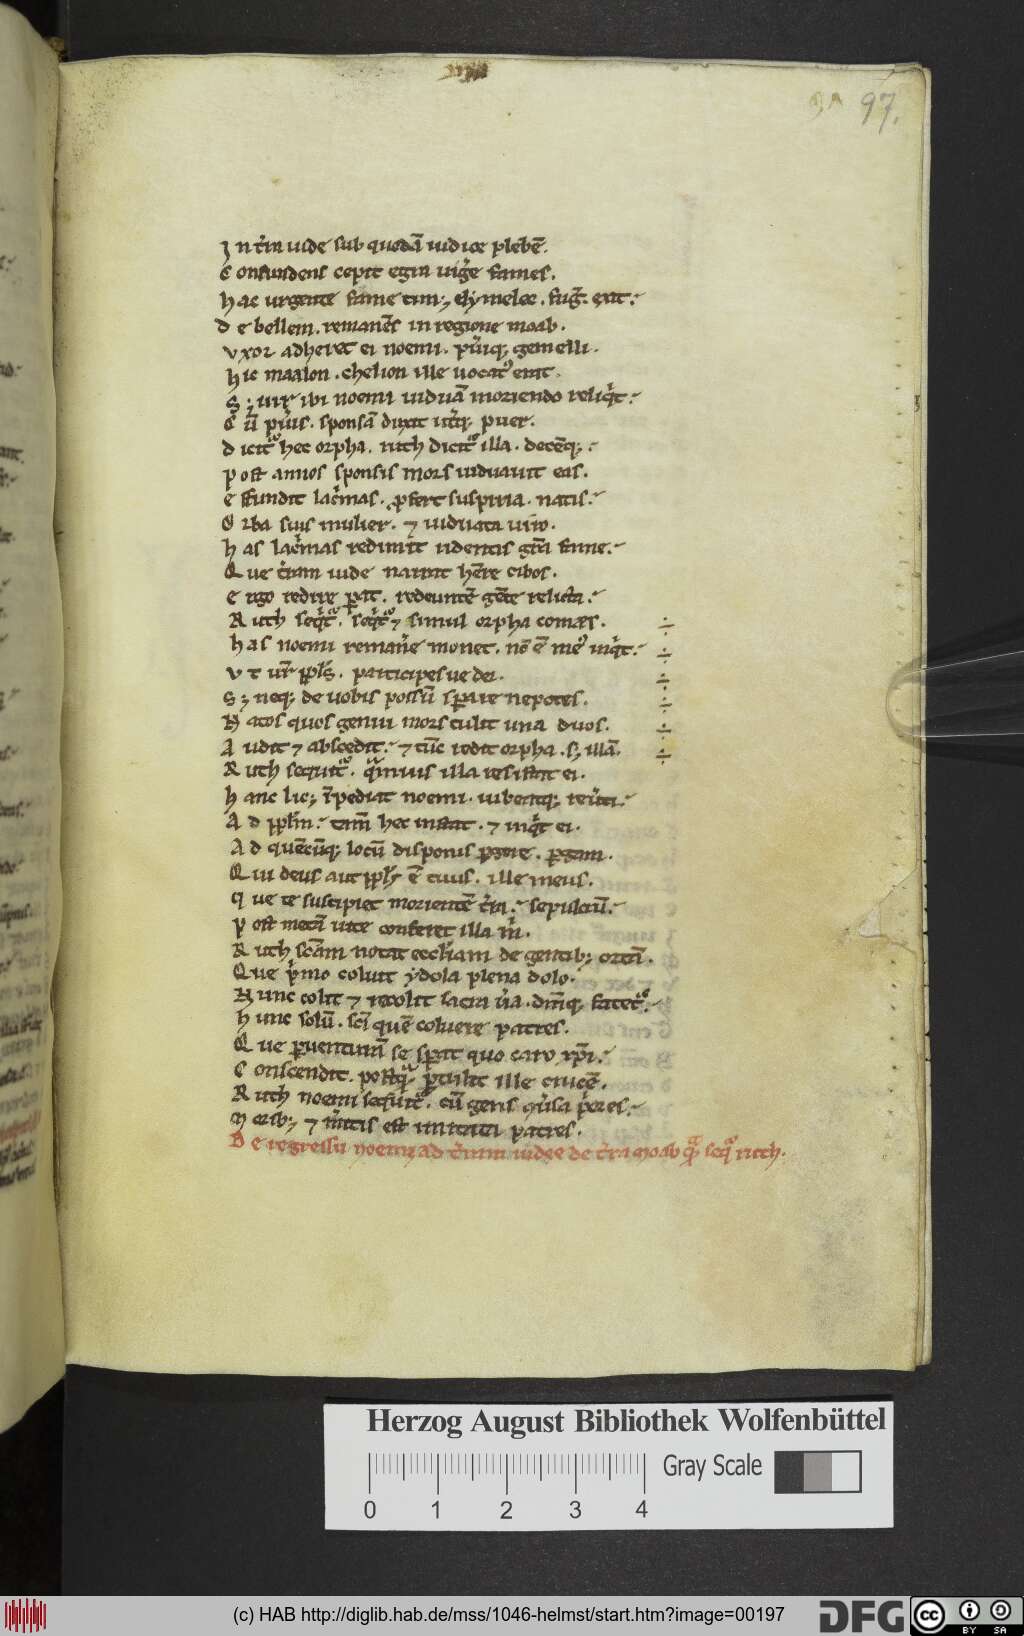 97.
In t̄ra iude sub quodā iudice plebē.
Confundens cepit egra uiḡe fames.
hac urgente fame tim; elymelec. fuḡ. exit:
de bellem. remanēs in regione moab.
vxor adheret ei noemi. p̄uiq; gemelli.
hic maalon. chelion ille uocat᷒ erat.
S; uir ibi noemi uiduā moriendo reliq̄t:
Cū p̄uis. sponsā duxit ut̄q; puer.
dicit᷒ hec orpha. ruth dicit᷒ illa. decēq;:
post annos sponsis mors uiduauit eas.
effundit lac̄mas. ꝓfert suspiria. natis:
Orba suis mulier. ⁊ uiduata uiro.
has lac̄mas redimit uidentis gr̄a fame:
Que t̄ram iude narrat hēre cibos.
ergo redire ꝑat. redeuntē gēte relicta:
Ruth seq̄t᷒. seq̄t᷒⁊ simul orpha comes.
has noemi remanē monet. nō ē me᷒ inq̄t:
vt ur̄ ppl̄s. participesue dei.
S; neq; de uobis possū sꝑare nepotes.
Natos quos genui mors tulit una duos.
Audit ⁊ abscedit: ⁊ tūc redit orpha. s; illā.
Ruth sequit᷒. q̄muis illa resistat ei.
hanc lic; īpediat noemi. iubeatq; reūti:
Ad ppl̄m: tam̄ hec instat. ⁊ inq̄t ei.
Ad quēcūq; locū disponis ꝑgere. ꝑgam.
Qui deus aut ppl̄s ē tuus. ille meus.
que te suscipiet morientē t̄ra: sepulcrū:
post metā uite conferet illa m̄.
Ruth scāam notat eccl̄iam de gentib; ortā.
Que p̄mo coluit ydola plena dolo.
Nunc colit ⁊ recolit sacra ūa. dm̄q; fatet᷒:
hunc solū. sc̄i quē coluere patres.
Que ꝑuenturā se sꝑat quo caro xp̄i:
Conscendit. postq̄; ꝑtulit ille crucē.
Ruth noemi sequit᷒. cū gens ōuersa p̄ores:
Morib; ⁊ m̄itis est imitata patres.
De regressu noemi ad t̄ram iudee de t̄ra moab q̄ seq᷒ ruth.
Herzog August Bibliothek Wolfenbüttel
Gray Scale
0 1 2 3 4
(c) HAB http://diglib.hab.de/mss/1046-helmst/start.htm?image=00197
DFG
cc BY SA